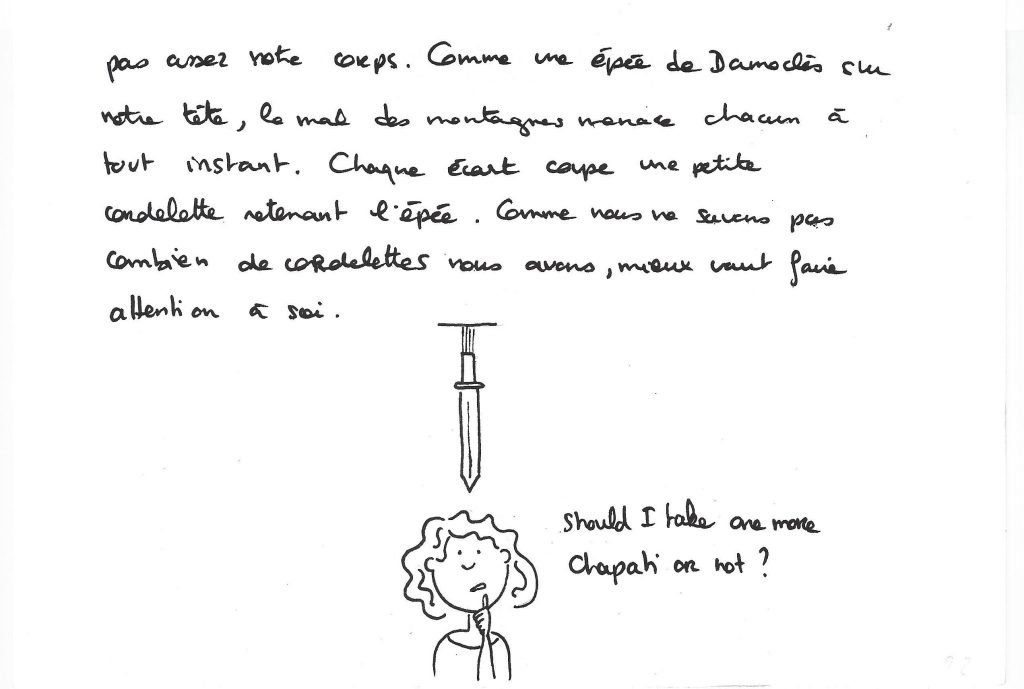 pas assez notre corps. Comme une épée de Damoclès sur
notre tête, le mal des montagnes menace chacun à
tout instant. Chaque écart coupe une petite
cordelette retenant l'épée. Comme nous ne savons pas
combien de cordelettes nous avons, mieux vaut faire
attention à soi.
should I take one more
Chapati or not ?